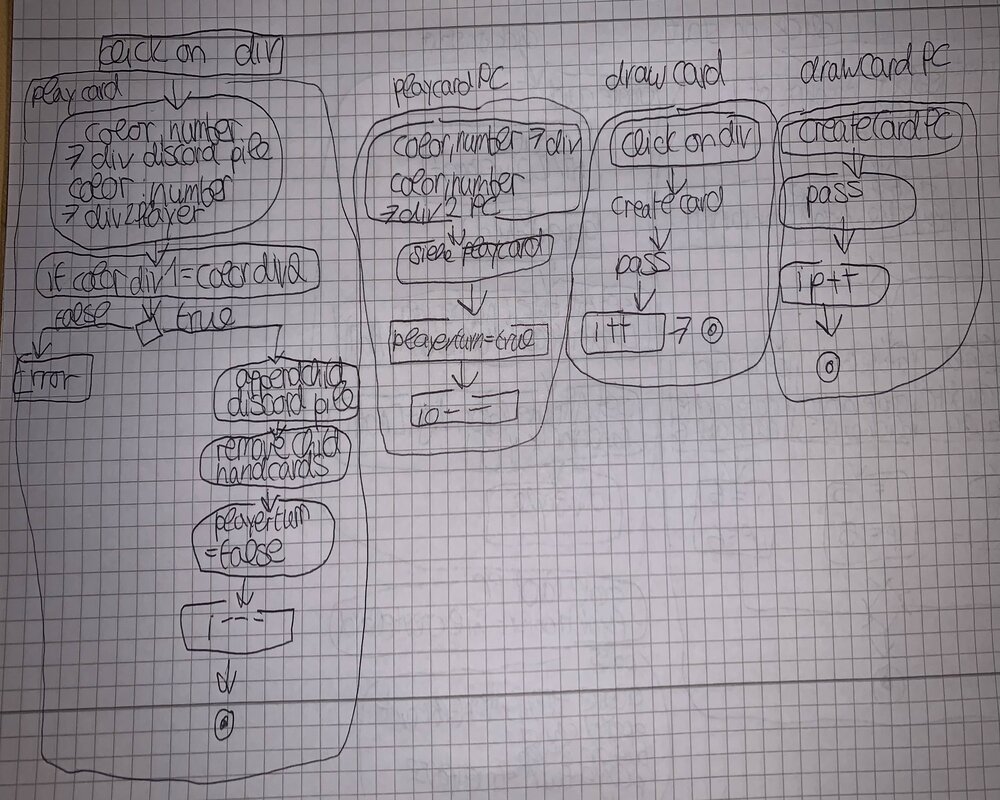 click on div
playcard
color, number
→ div discard pile
color, number
→ div2player
if color div 1 = color div2
false
true
Error
append child
discard pile
remove child
handcards
playerturn
= false
i--
playcard PC
color, number → div
color, number
→ div 2 PC
siehe playcard
playerturn = true
ip--
draw card
click on div
create card
pass
i++ →
drawcard PC
create Card PC
pass
ip++